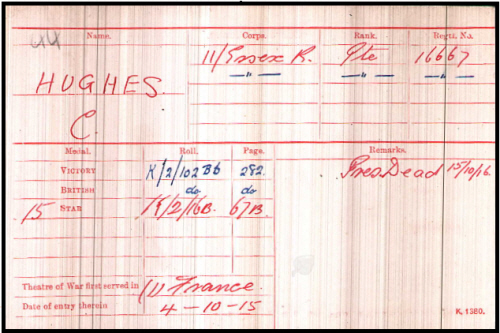 44
Name. Corps. Rank. Regtl. No.
HUGHES 11/Essex R. Pte 16667
—"— —"— —"—
C.
Medal. Roll. Page. Remarks.
VICTORY K/2/102B6 282. Pres Dead 15/10/16
BRITISH do do
15 STAR K/2/16B. 67B.
Theatre of War first served in (1) France.
Date of entry therein 4-10-15
K. 1380.